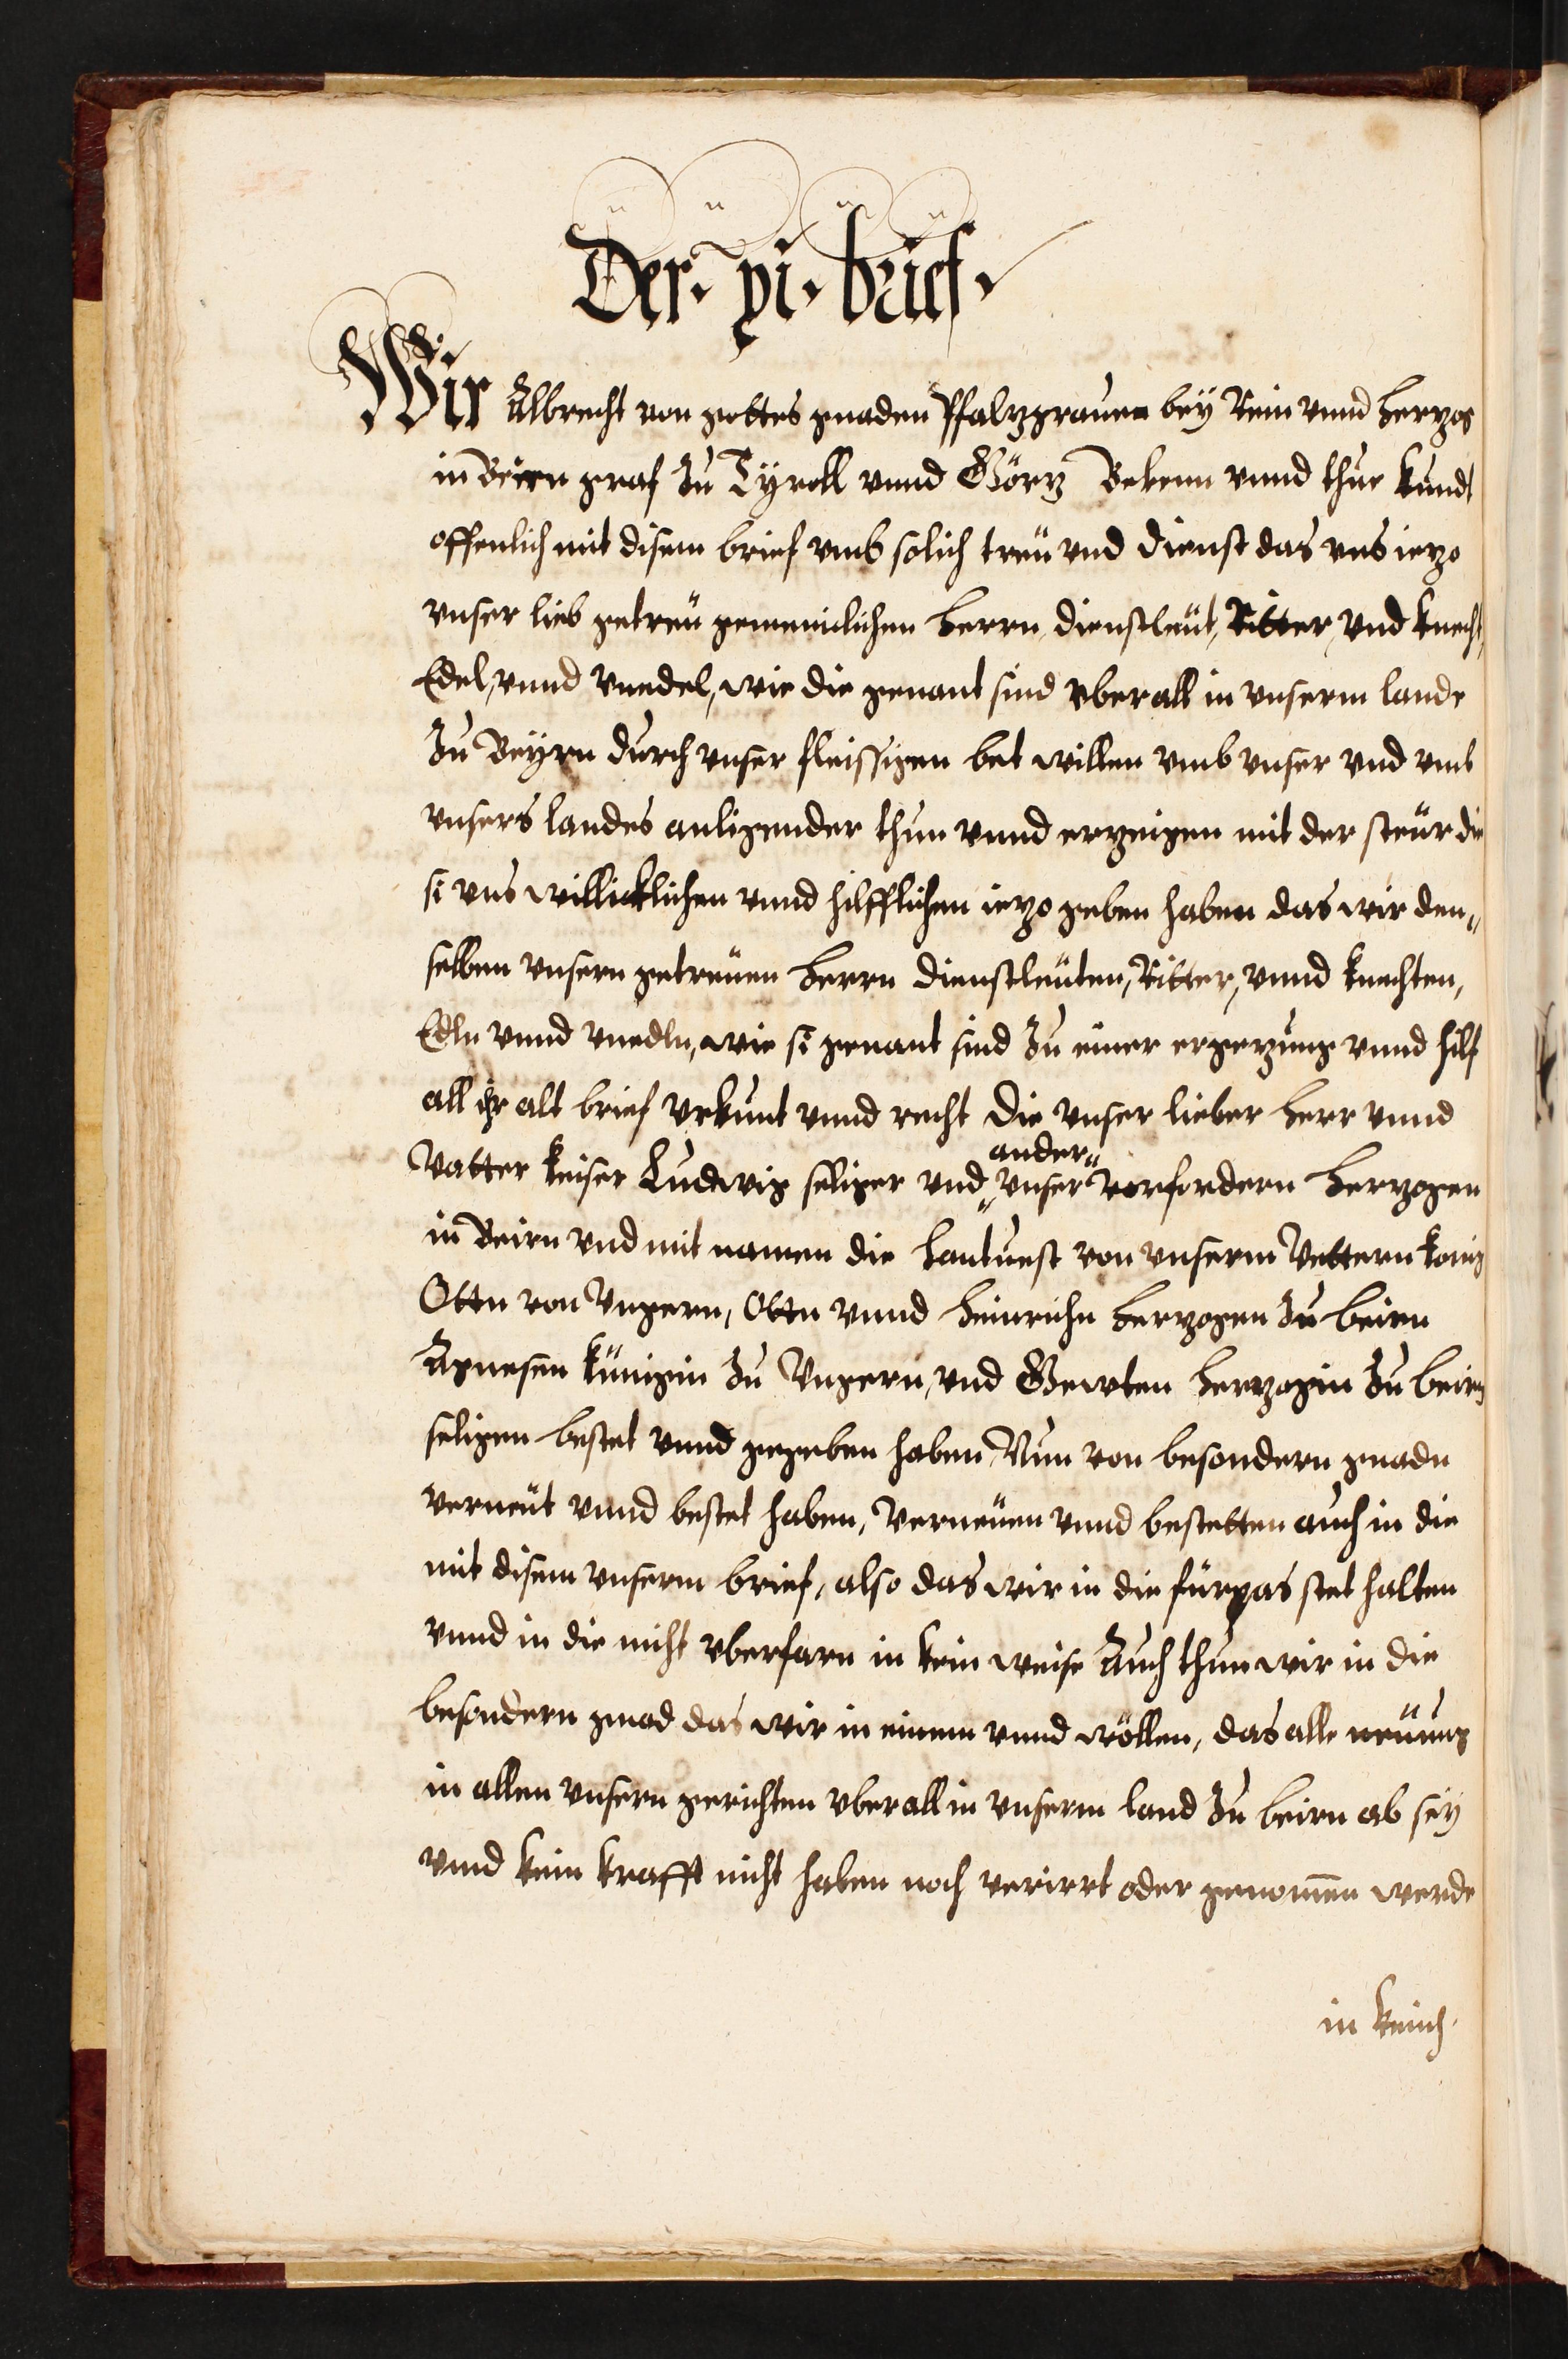 Der · xi · brief ·
Wir Albrecht von gottes gnaden Pfalzgrauen bey Rein vnnd herzog
in Beirn graf zu Tyroll vnnd Görz Bekenn vnnd thue kundt
offenlich mit disem brief vmb solich treu vnd dienst das vns iezo
vnser lieb getreü gemeinclichen herrn, dienstleüt, Ritter, vnd knecht,
Edel, vnnd vnedel, wie die genant sind vberall in vnserm lande
zu Beyrn durch vnser fleissigen bet willen vmb vnser vnd vmb
vnsers landes anligender thun vnnd erzeigen mit der steür die
si vns willicklichen vnnd hilfflichen iezo geben haben das wir den„
selben vnsern getreüen herrn dienstleüten, Ritter, vnnd knechten,
Edln vnnd vnedln, wie si genant sind zu einer ergezung vnnd hilf
all ihr alt brief vrkunt vnnd recht die vnser lieber herr vnnd
ander„
Vatter keiser Ludwig seliger vnd „ vnser vorfordern herzogen
in Beirn vnd mit namen die hantuest von vnserm Vettern konig
Ottn von Vngern, Ottn vnnd heinrichn herzogen zu beirn
Agnesen künigin zu Vngern, vnd Gewten herzogin zu beirn
seligen bestet vnnd gegeben haben, Nun von besondern gnadn
verneüt vnnd bestet haben, verneüen vnnd bestetten auch in die
mit disem vnserm brief, also das wir in die fürpas stet halten
vnnd in die nicht vberfarn in kein weise Auch thun wir in die
besondern gnad das wir in einem vnnd wöllen, das alle neüung
in allen vnsern gerichten vberall in vnserm land zu beirn ab sey
vnnd kein krafft nicht haben noch verirrt oder genomen werde
in keinch